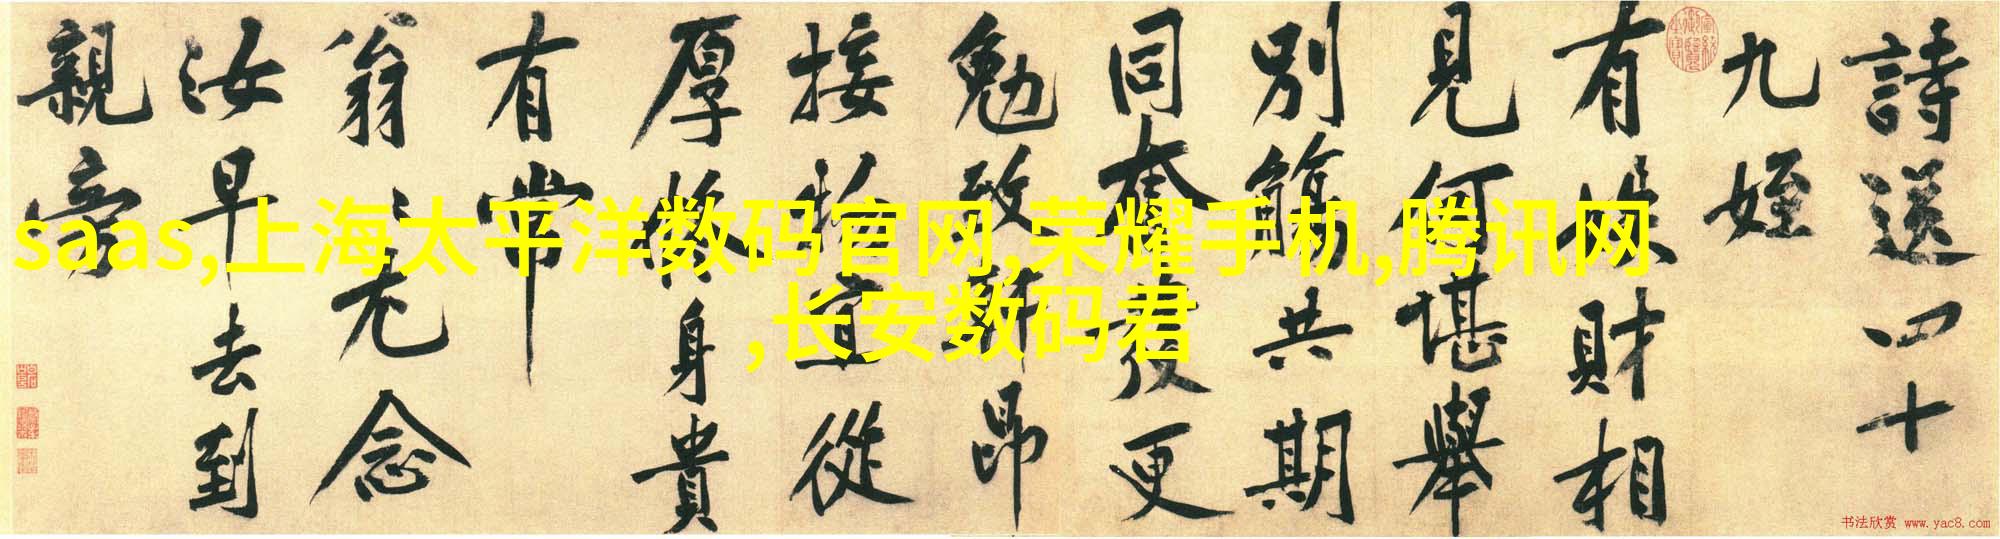 詩送四十
九姪
有財相
見何堪舉
別觴共期
同奮發更
勉致軒昂
接物宜從
厚身貴
有常
翁〻无念
汝早去到
親旁
saas,上海太平洋数码官网,荣耀手机,腾讯网
,长安数码君
书法欣赏 www.yac8.com